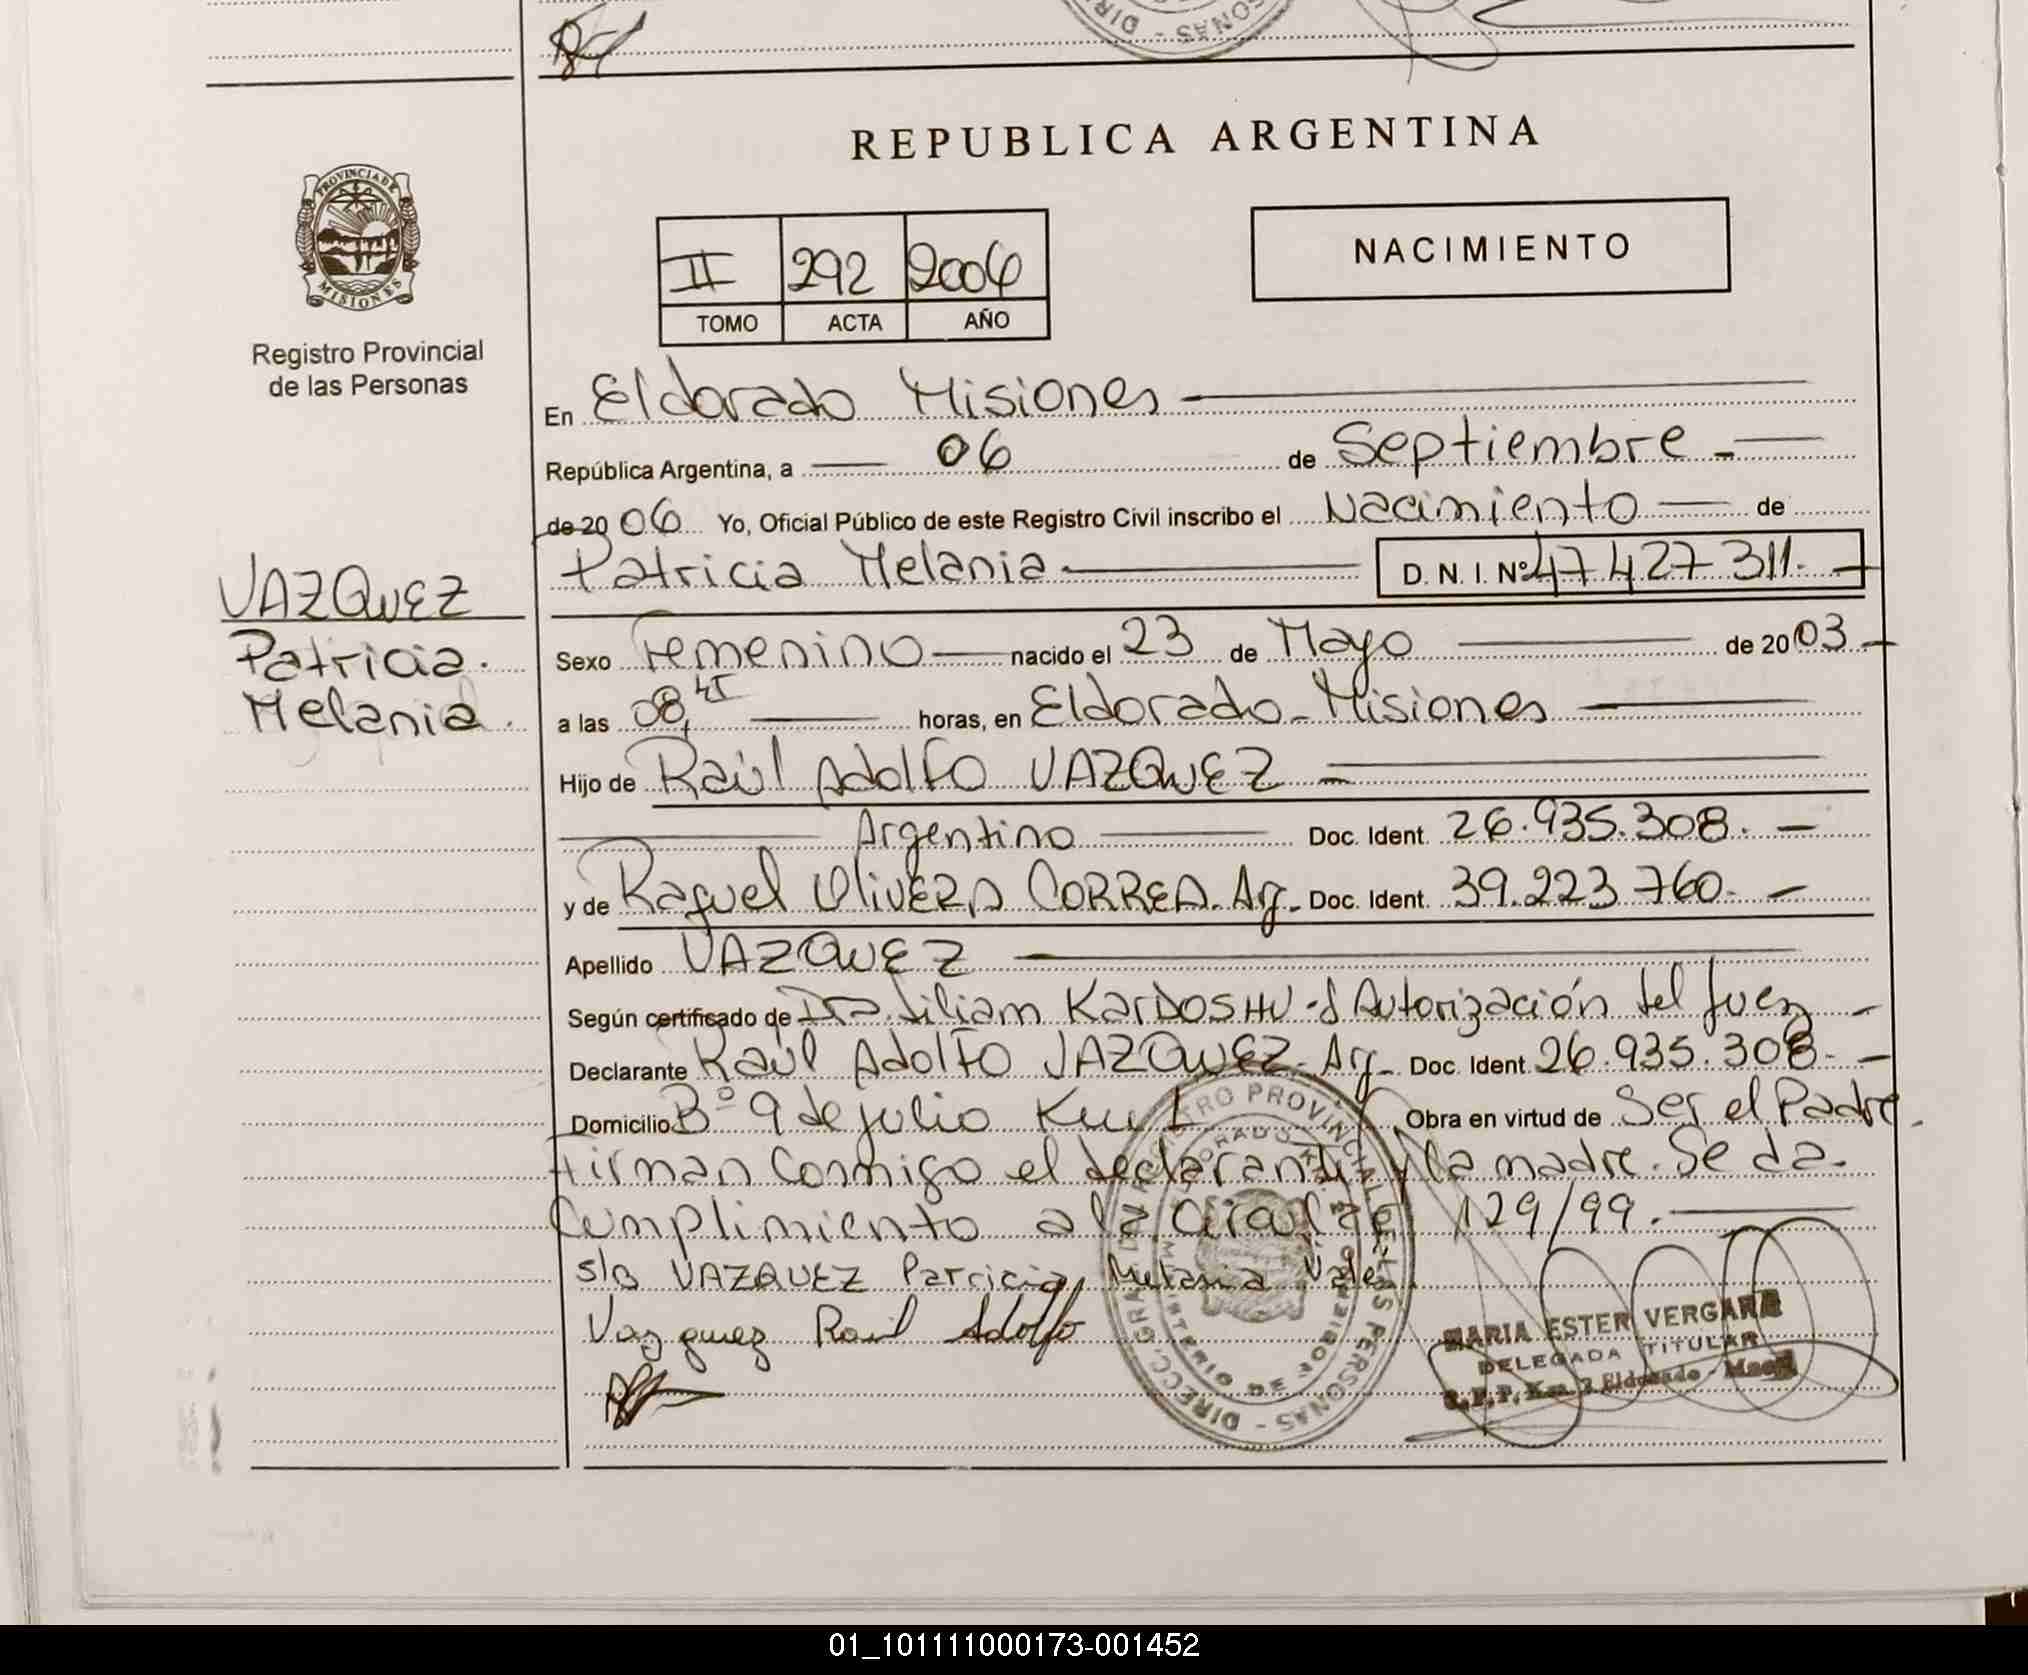 REPUBLICA ARGENTINA
PROVINCIA DE
MISIONES
Registro Provincial
de las Personas
II 292 2006
TOMO ACTA AÑO
NACIMIENTO
En Eldorado Misiones
República Argentina, a 06 de Septiembre
de 2006 Yo, Oficial Público de este Registro Civil inscribo el Nacimiento de
Patricia Melania D. N. I. Nº 47 427 311.
VAZQUEZ
Patricia
Melania
Sexo Femenino nacido el 23 de Mayo de 2003
a las 08, horas, en Eldorado Misiones
Hijo de Raúl Adolfo VAZQUEZ
Argentino Doc. Ident. 26.935.308.
y de Raquel OliVERA CORREA. Arg. Doc. Ident. 39.223.760.
Apellido VAZQUEZ
Según certificado de Dra. Liliam KarDOS Autorización del Juez
Declarante Raúl Adolfo VAZQUEZ. Arg. Doc. Ident. 26.935.308.
Domicilio Bº 9 de julio Km Obra en virtud de Ser el Padre.
Firman Conmigo el declarante y la madre. Se da
Cumplimiento a la Circular 129/99.
S/B VAZQUEZ Patricia Melania Vale
Vazquez Raul Adolfo
MARIA ESTER VERGARA
DELEGADA TITULAR
R.P.P. Km. 2 Eldorado - Mnes
01_101111000173-001452